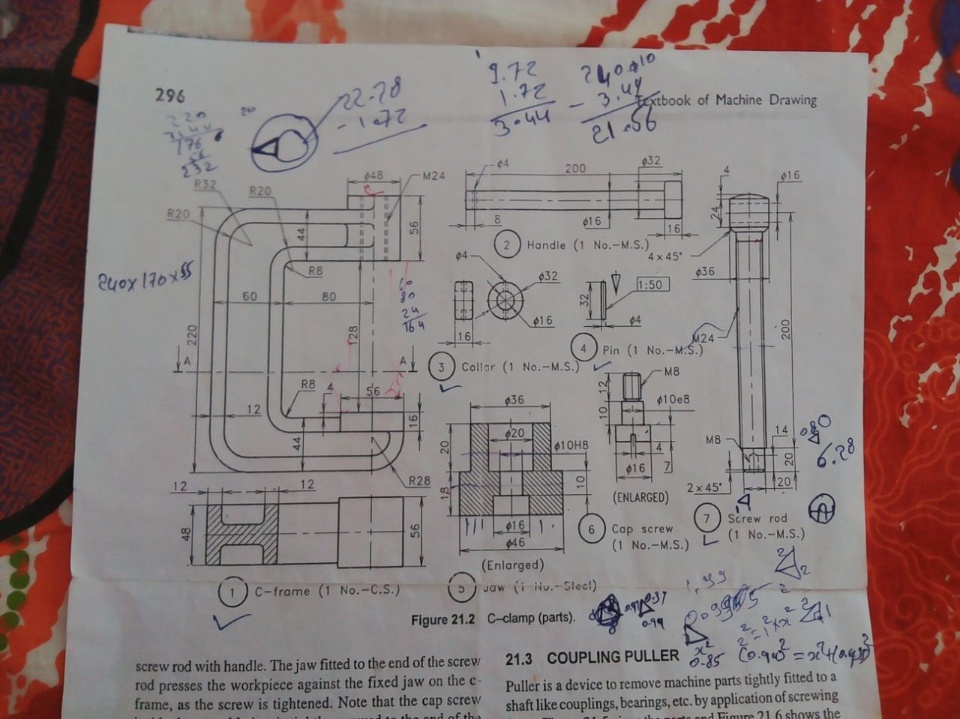 296
Textbook of Machine Drawing
22.28
- 1.72
9.72
1.72
3.44
3.44
21.56
240x170x55
R32
R20
R20
ϕ48
M24
44
56
R8
60
80
128
220
A
A
R8
4
56
12
44
16
R28
12
12
48
56
1 C-frame (1 No.-C.S.)
ϕ4
200
ϕ32
8
ϕ16
16
2 Handle (1 No.-M.S.)
ϕ4
ϕ32
ϕ16
16
3 Collar (1 No.-M.S.)
1:50
32
ϕ4
4 Pin (1 No.-M.S.)
ϕ36
ϕ20
ϕ10H8
20
18
10
ϕ16
ϕ46
(Enlarged)
5 Jaw (1 No.-Steel)
M8
12
10
ϕ10e8
4
ϕ16
7
(ENLARGED)
6 Cap screw
(1 No.-M.S.)
4
ϕ16
24
4x45°
ϕ36
M24
200
M8
14
20
2x45°
20
7 Screw rod
(1 No.-M.S.)
6.28
0.85
Figure 21.2 C-clamp (parts).
screw rod with handle. The jaw fitted to the end of the screw
rod presses the workpiece against the fixed jaw on the c-
frame, as the screw is tightened. Note that the cap screw
21.3 COUPLING PULLER
Puller is a device to remove machine parts tightly fitted to a
shaft like couplings, bearings, etc. by application of screwing